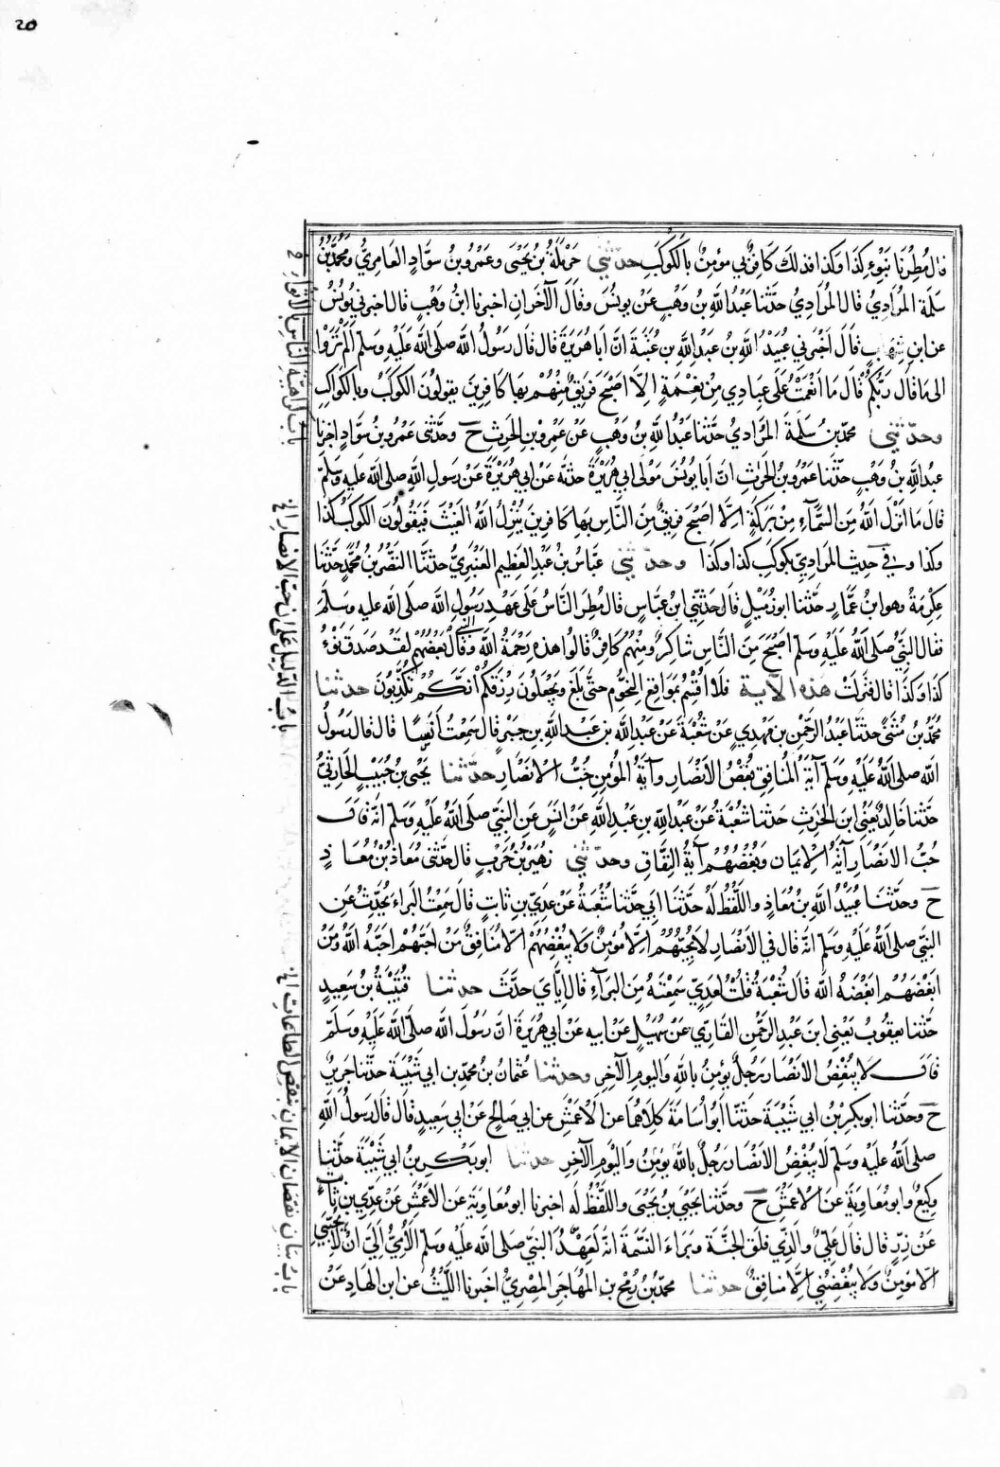 20
قال مُطِرْنا بنَوْءِ كذا وكذا فذلك كافِرٌ بي مؤمِنٌ بالكوكَبِ حدّثني حَرْمَلَةُ بنُ يَحْيَى وعَمْرُو بنُ سوَّادٍ العامِرِيُّ ومحمَّدُ بنُ
سَلَمَةَ المُرَادِيُّ قال المُرَادِيُّ حَدَّثنا عبدُ اللهِ بنُ وَهْبٍ عَنْ يونُسَ وقالَ الآخَرانِ اخبرنا ابنُ وَهْبٍ قال اخبرني يُونُسُ
عن ابنِ شِهابٍ قالَ أَخْبَرَني عُبَيْدُ اللهِ بْنُ عبدِ اللهِ بن عُتْبَةَ انَّ أبا هُرَيْرَةَ قال قال رَسُولُ الله صلى الله عَلَيْهِ وسلم أَلَمْ تَرَوْا
الى ما قال رَبُّكُمْ قالَ ما أنْعَمْتُ عَلَى عِبَادِي مِنْ نِعْمَةٍ إلاّ أَصْبَحَ فَرِيقٌ مِنْهُمْ بها كافِرِينَ يقولُونَ الكَوْكَبُ وبالكَوَاكِبِ
وحدّثني محمّد بنُ سَلَمَةَ المُرَادِيُّ حدَّثنا عَبْدُ اللهِ بنُ وَهْبٍ عَنْ عَمْرِو بْنِ الحَرِثِ ح وحَدَّثنى عَمْرُو بنُ سَوَّادٍ اخبرنا
عبدُ اللهِ بنُ وَهْبٍ حدَّثنا عَمْرُو بنُ الحَرِثِ انَّ أبَا يُونُسَ مَوْلى ابي هُرَيْرَةَ حدَّثه عَنْ ابي هُرَيْرَةَ عَنْ رَسُولِ اللهِ صلى الله عَلَيهِ وسَلَّم
قال مَا انْزَلَ اللهُ مِنَ السَّمَآءِ مِنْ بَرَكَةٍ إلَّا اصْبَحَ فَرِيقٌ مِنَ النَّاسِ بِهَا كافِرِينَ يُنْزِلُ اللهُ الغَيْثَ فَيَقُولُونَ الكَوْكَبُ كَذا
وكذا وفي حَدِيثِ المُرادِيِّ بكَوْكَبِ كذا وكَذا وحدّثني عَبَّاسُ بنُ عَبْدِ العَظِيمِ العَنْبَرِيُّ حدثنا النَّضْرُ بنُ مُحمَّدٍ حَدَّثنا
عِكْرِمَةُ وهو ابنُ عمَّارٍ حَدَّثنا ابو زُمَيْلٍ قالَ حَدَّثنِي ابن عبّاسٍ قال مُطِرَ النَّاسُ عَلَى عَهْدِ رَسُولِ اللهِ صلى الله عليه وسلّم
فقال النّبيُّ صَلى الله عَلَيْهِ وَسَلّم أصْبَحَ مِنَ النَّاسِ شاكِرٌ ومِنْهُم كافِرٌ قالُوا هذه رَحْمَةُ اللهِ وقال بَعْضُهُمْ لقد صَدَقَ نَوْءُ
كذا وكَذا قال فنزلَتْ هذه الآيةُ فَلَا أُقْسِمُ بمَوَاقِعِ النُّجُومِ حتى بَلَغَ وتَجْعَلُونَ رِزْقَكُمْ أنَّكُمْ تُكَذِّبُونَ حدّثنا
مُحَمَّدُ بنُ مُثَنًّى حدّثنا عَبْدُ الرَّحْمنِ بن مَهْدِيٍّ عَنْ شُعْبَةَ عَنْ عَبْدِ اللهِ بنِ عَبْدِ اللهِ بنِ جَبْرٍ قال سَمِعْتُ أنَسًا قال قال رَسُولُ
الله صلى اللهُ عَلَيْهِ وسَلّم آيَةُ المُنافِقِ بُغْضُ الأنْصَارِ وآيَةُ المُؤْمِنِ حُبُّ الانْصَارِ حدّثنا يحيى بنُ حَبِيبٍ الحَارِثِيُّ
حَدَّثنا خَالِدٌ يَعْنِي ابنَ الحَرِثِ حدّثنا شُعْبَةُ عَنْ عَبْدِ اللهِ بنِ عَبْدِ اللهِ عَنْ انَسٍ عَنِ النَّبيِّ صلى اللهُ عَلَيْهِ وسَلّم انّهُ قال
حُبُّ الانْصَارِ آيَةُ الايمَانِ وبُغْضُهُمْ آيَةُ النِّفَاقِ وحدّثني زُهَيْرُ بنُ حَرْبٍ قال حدَّثنى مُعَاذُ بْنُ مُعَاذٍ
ح وحدَّثنا عُبَيْدُ اللهِ بنُ مُعَاذٍ واللَّفْظُ لَهُ حَدَّثَنَا أبي حَدَّثنا شُعْبَةُ عَنْ عَدِيِّ بنِ ثابتٍ قال سَمِعْتُ البَرَاءَ يُحَدِّثُ عَنِ
النَّبيِّ صلى الله عَلَيْهِ وسَلّم انَّهُ قال في الأنْصَارِ لا يُحِبُّهُمْ الّا مُؤْمِنٌ ولا يُبْغِضُهُمْ الّا مُنَافِقٌ مَنْ احَبَّهُمْ احَبَّهُ اللهُ ومَنْ
ابْغَضَهُم ابْغَضَهُ الله قال شُعْبَةُ قُلْتُ لِعَدِيٍّ سَمِعْتَهُ مِنَ البَرَآءِ قال إيَّايَ حدَّثَ حدثنا قُتَيْبَةُ بنُ سَعِيدٍ
حَدَّثنا يعقُوبُ يَعْنِي ابنَ عبدِ الرَّحْمنِ القَارِيَّ عَنْ سُهَيْلٍ عَنْ ابيهِ عَنْ ابي هُرَيْرَةَ انَّ رَسُولَ اللهِ صلّى الله عَلَيْهِ وسَلَّم
قال لا يُبْغِضُ الانْصَارَ رَجُلٌ يؤمِنُ باللهِ واليومِ الآخِرِ وحدثنا عُثْمَانُ بنُ مُحمَّدِ بن ابي شَيْبَةَ حدّثنا جَرِيرٌ
ح وحَدَّثنا ابو بكرِ بْنُ ابي شَيْبَةَ حَدّثنا أبُو أُسَامَةَ كِلَاهُمَا عن الاَعْمَشِ عن أبي صَالحٍ عَنْ أبي سَعِيدٍ قال قال رَسُولُ اللهِ
صلى اللهُ عَلَيْهِ وسَلّم لا يُبْغِضُ الانْصَارَ رَجُلٌ باللهِ يُؤمِنُ واليَوْمِ الآخِرِ حدثنا ابو بَكْرِ بنُ ابي شَيْبَةَ حدّثنا
وَكِيعٌ وابو مُعَاوِيَةَ عَنْ الاعْمَشِ ح وحدَّثنا يَحْيَى بنُ يَحْيَى واللَّفْظُ لَه اخبرنا ابو مُعَاوِيَةَ عَنِ الاَعْمَشِ عَنْ عَدِيِّ بن ثابتٍ
عَنْ زِرٍّ قال قال عَلِيٌّ والَّذِي فَلَقَ الحَبَّةَ وبَرَأَ النَّسَمَةَ انَّهُ لَعَهْدُ النبيِّ صلى الله عَلَيْهِ وسَلّم الأُمِّيِّ إلَيَّ انْ لا يُحِبَّنِي
الا مؤمِنٌ ولا يُبْغِضُنِي إلّا منافِقٌ حدثنا محمّدُ بنُ رُمْحِ بنِ المُهاجِرِ المِصْرِيُّ اخبَرنا اللَّيْثُ عن ابن الهادِ عَنْ
باب كراهية الناس بالانواء
باب الدّليل على ان حبّ الانصار الخ
باب بيان نقصان الايمان بنقص الطاعات الخ